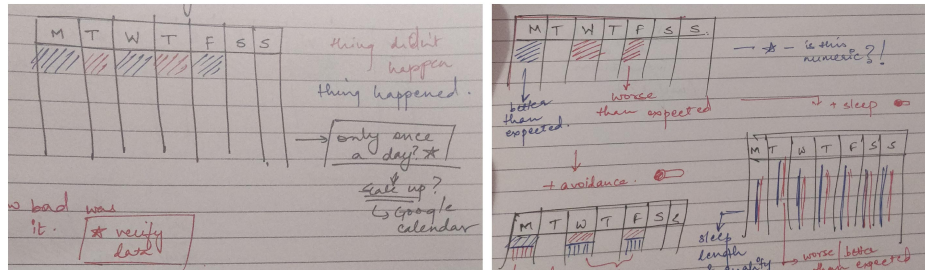 M T W T F S S
thing didn't
happen
thing happened.
only once
a day? *
scale up?
↳ Google
calendar
bad was
it.
* verify
data
M T W T F S S.
— * — is this
numeric?!
better
than
expected.
worse
than expected
+ sleep
+ avoidance.
M T W T F S S
M T W T F S S
sleep
length
quality
worse/better
than expected